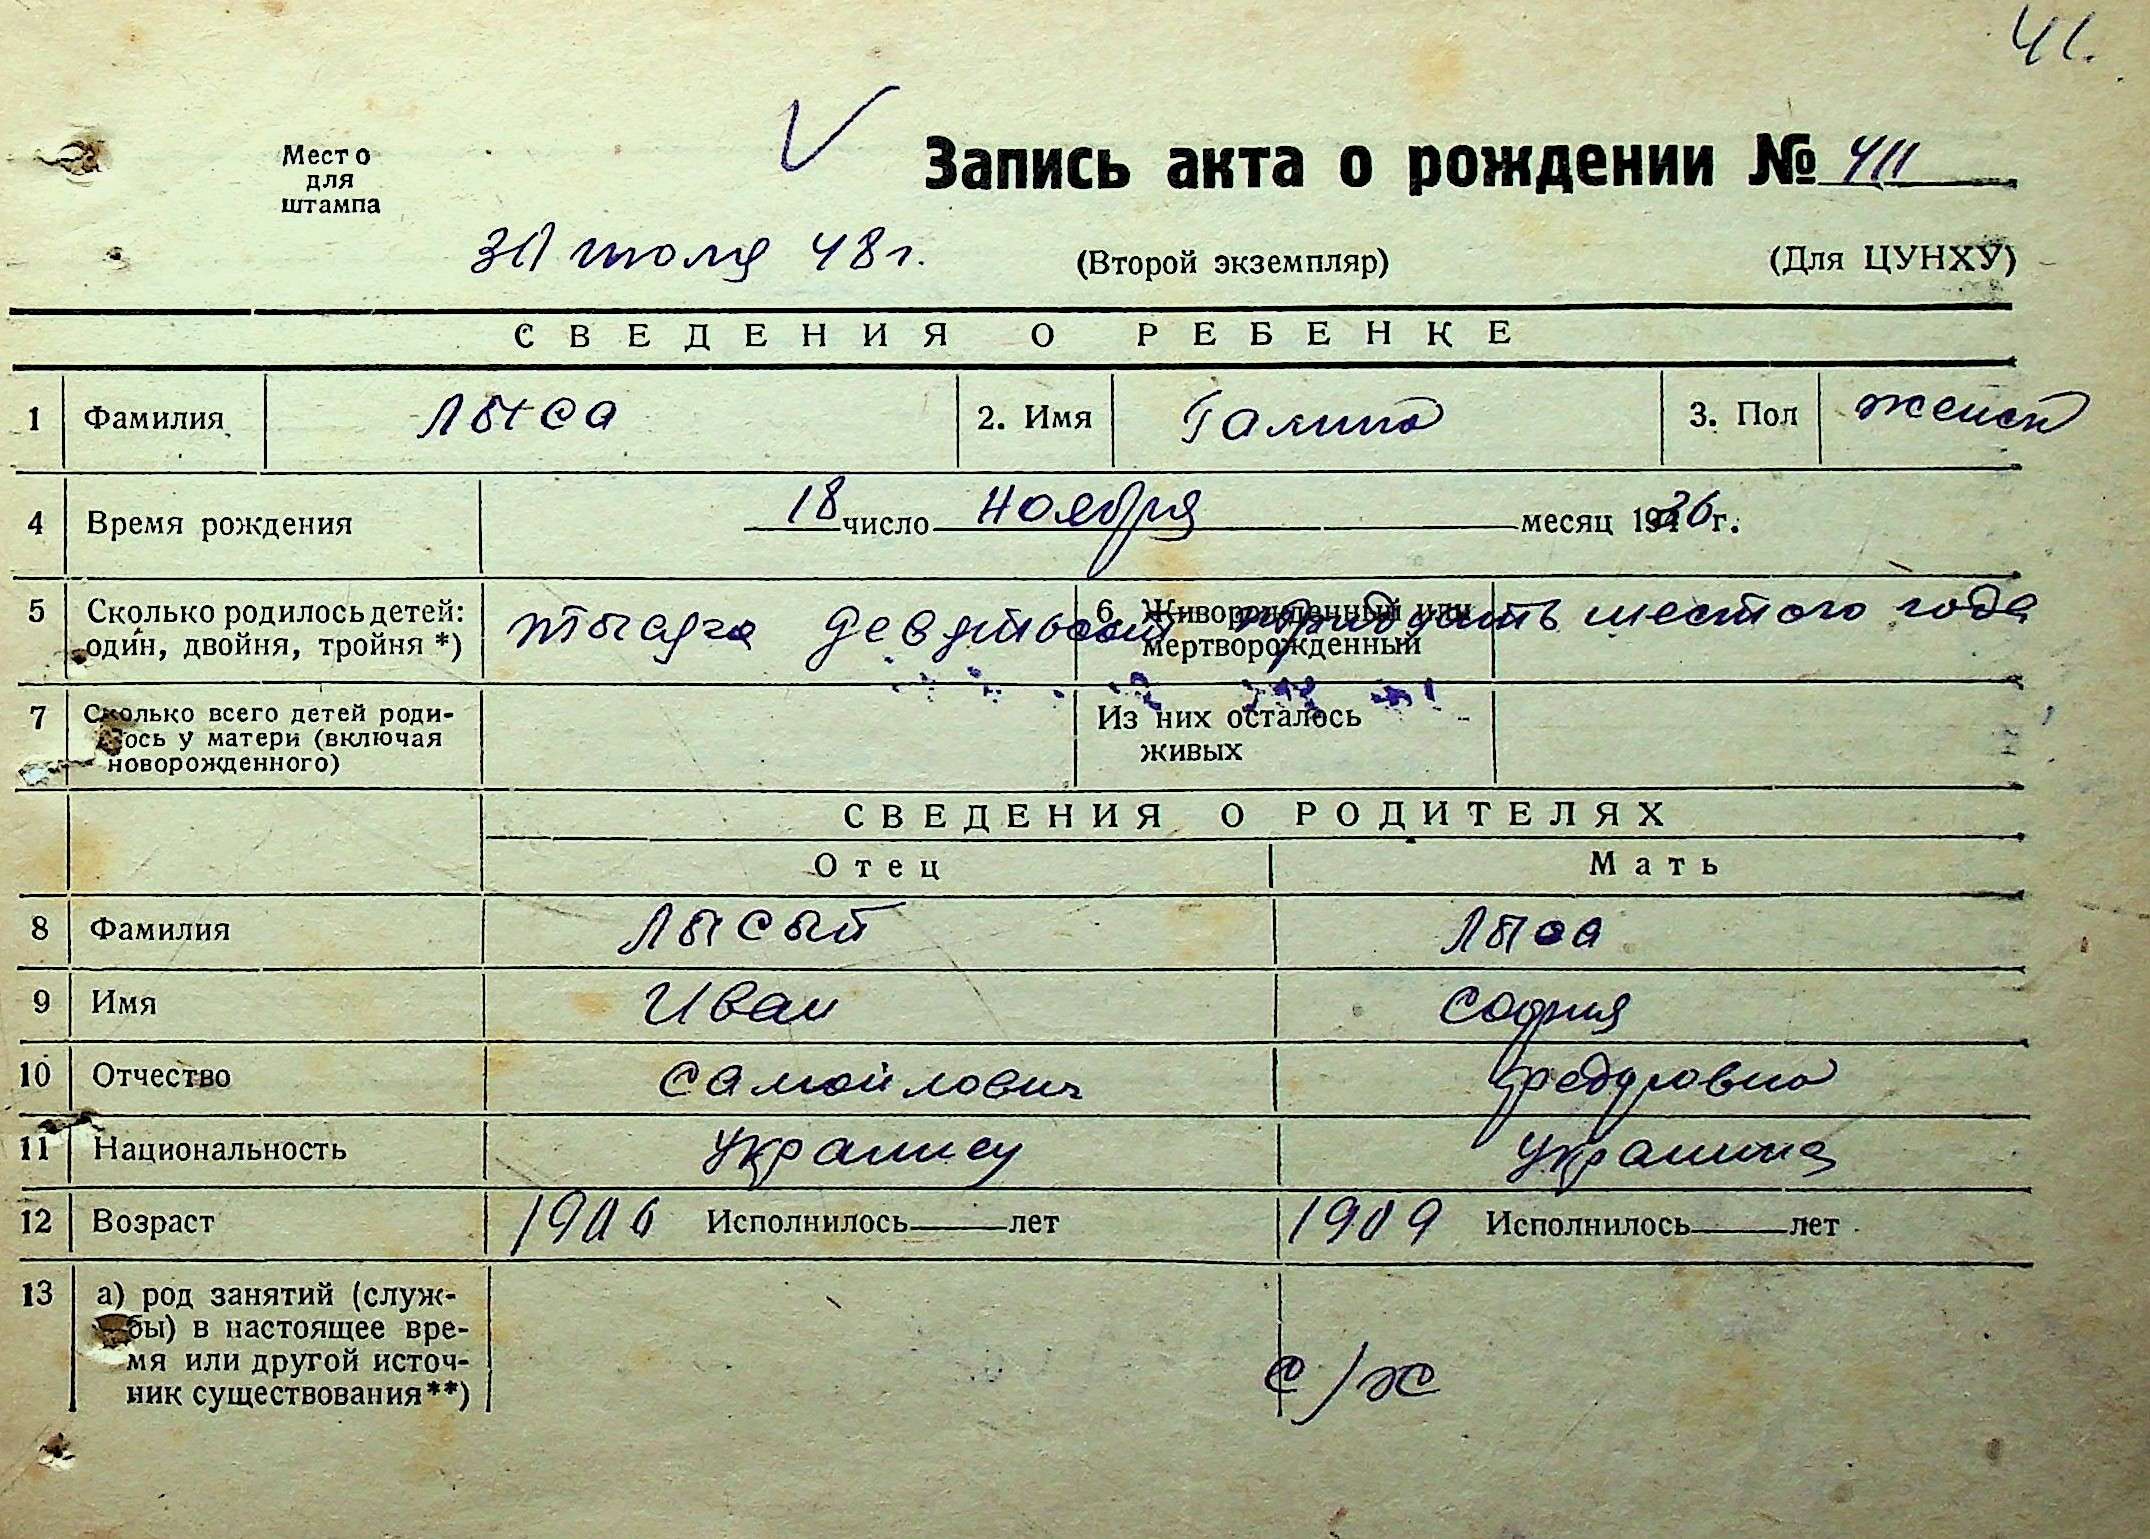 41.
Место
для
штампа
Запись акта о рождении № 411
30 июля 48 г.
(Второй экземпляр)
(Для ЦУНХУ)
СВЕДЕНИЯ О РЕБЕНКЕ
1 Фамилия Лыса 2. Имя Галина 3. Пол женск
4 Время рождения 18 число ноября месяц 1936 г.
5 Сколько родилось детей: один, двойня, тройня *) 6. Живорожденный или мертворожденный
тысяча девятьсот тридцать шестого года
7 Сколько всего детей родилось у матери (включая новорожденного) Из них осталось живых
СВЕДЕНИЯ О РОДИТЕЛЯХ
Отец Мать
8 Фамилия Лысый Лыса
9 Имя Иван София
10 Отчество Самойлович Федоровна
11 Национальность украинец украинка
12 Возраст 1906 Исполнилось лет 1909 Исполнилось лет
13 а) род занятий (служ-
бы) в настоящее вре-
мя или другой источ-
ник существования**)
с/х